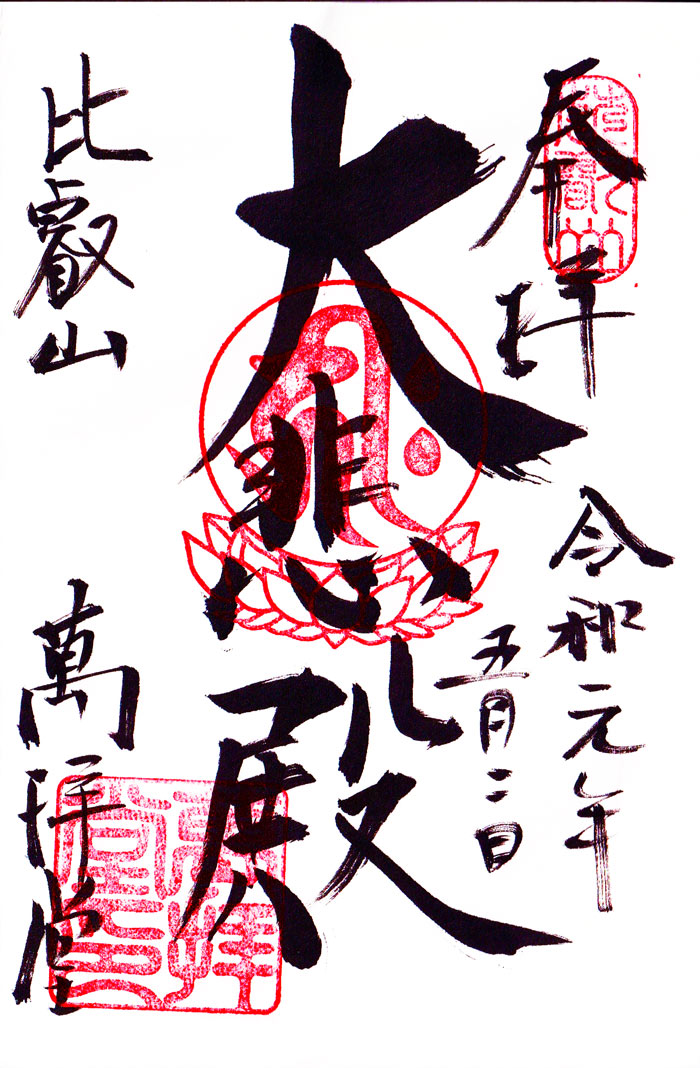 奉拝
令和元年
五月二日
大悲殿
ह्रीः
比叡山
萬拝堂
萬拝堂印